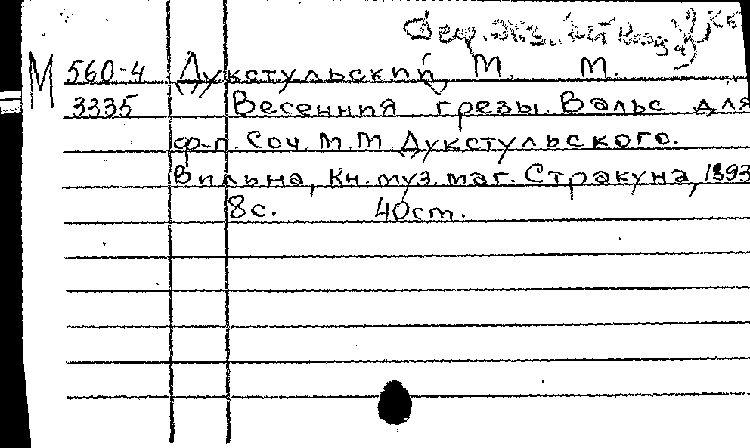 Деф. экз.
М 560-4 Дукстульский, М. М.
3335 Весенния грезы. Вальс для
ф-п. Соч. М. М. Дукстульского.
Вильна, Кн. муз. маг. Стракуна, 1893
8 с. 40 ст.